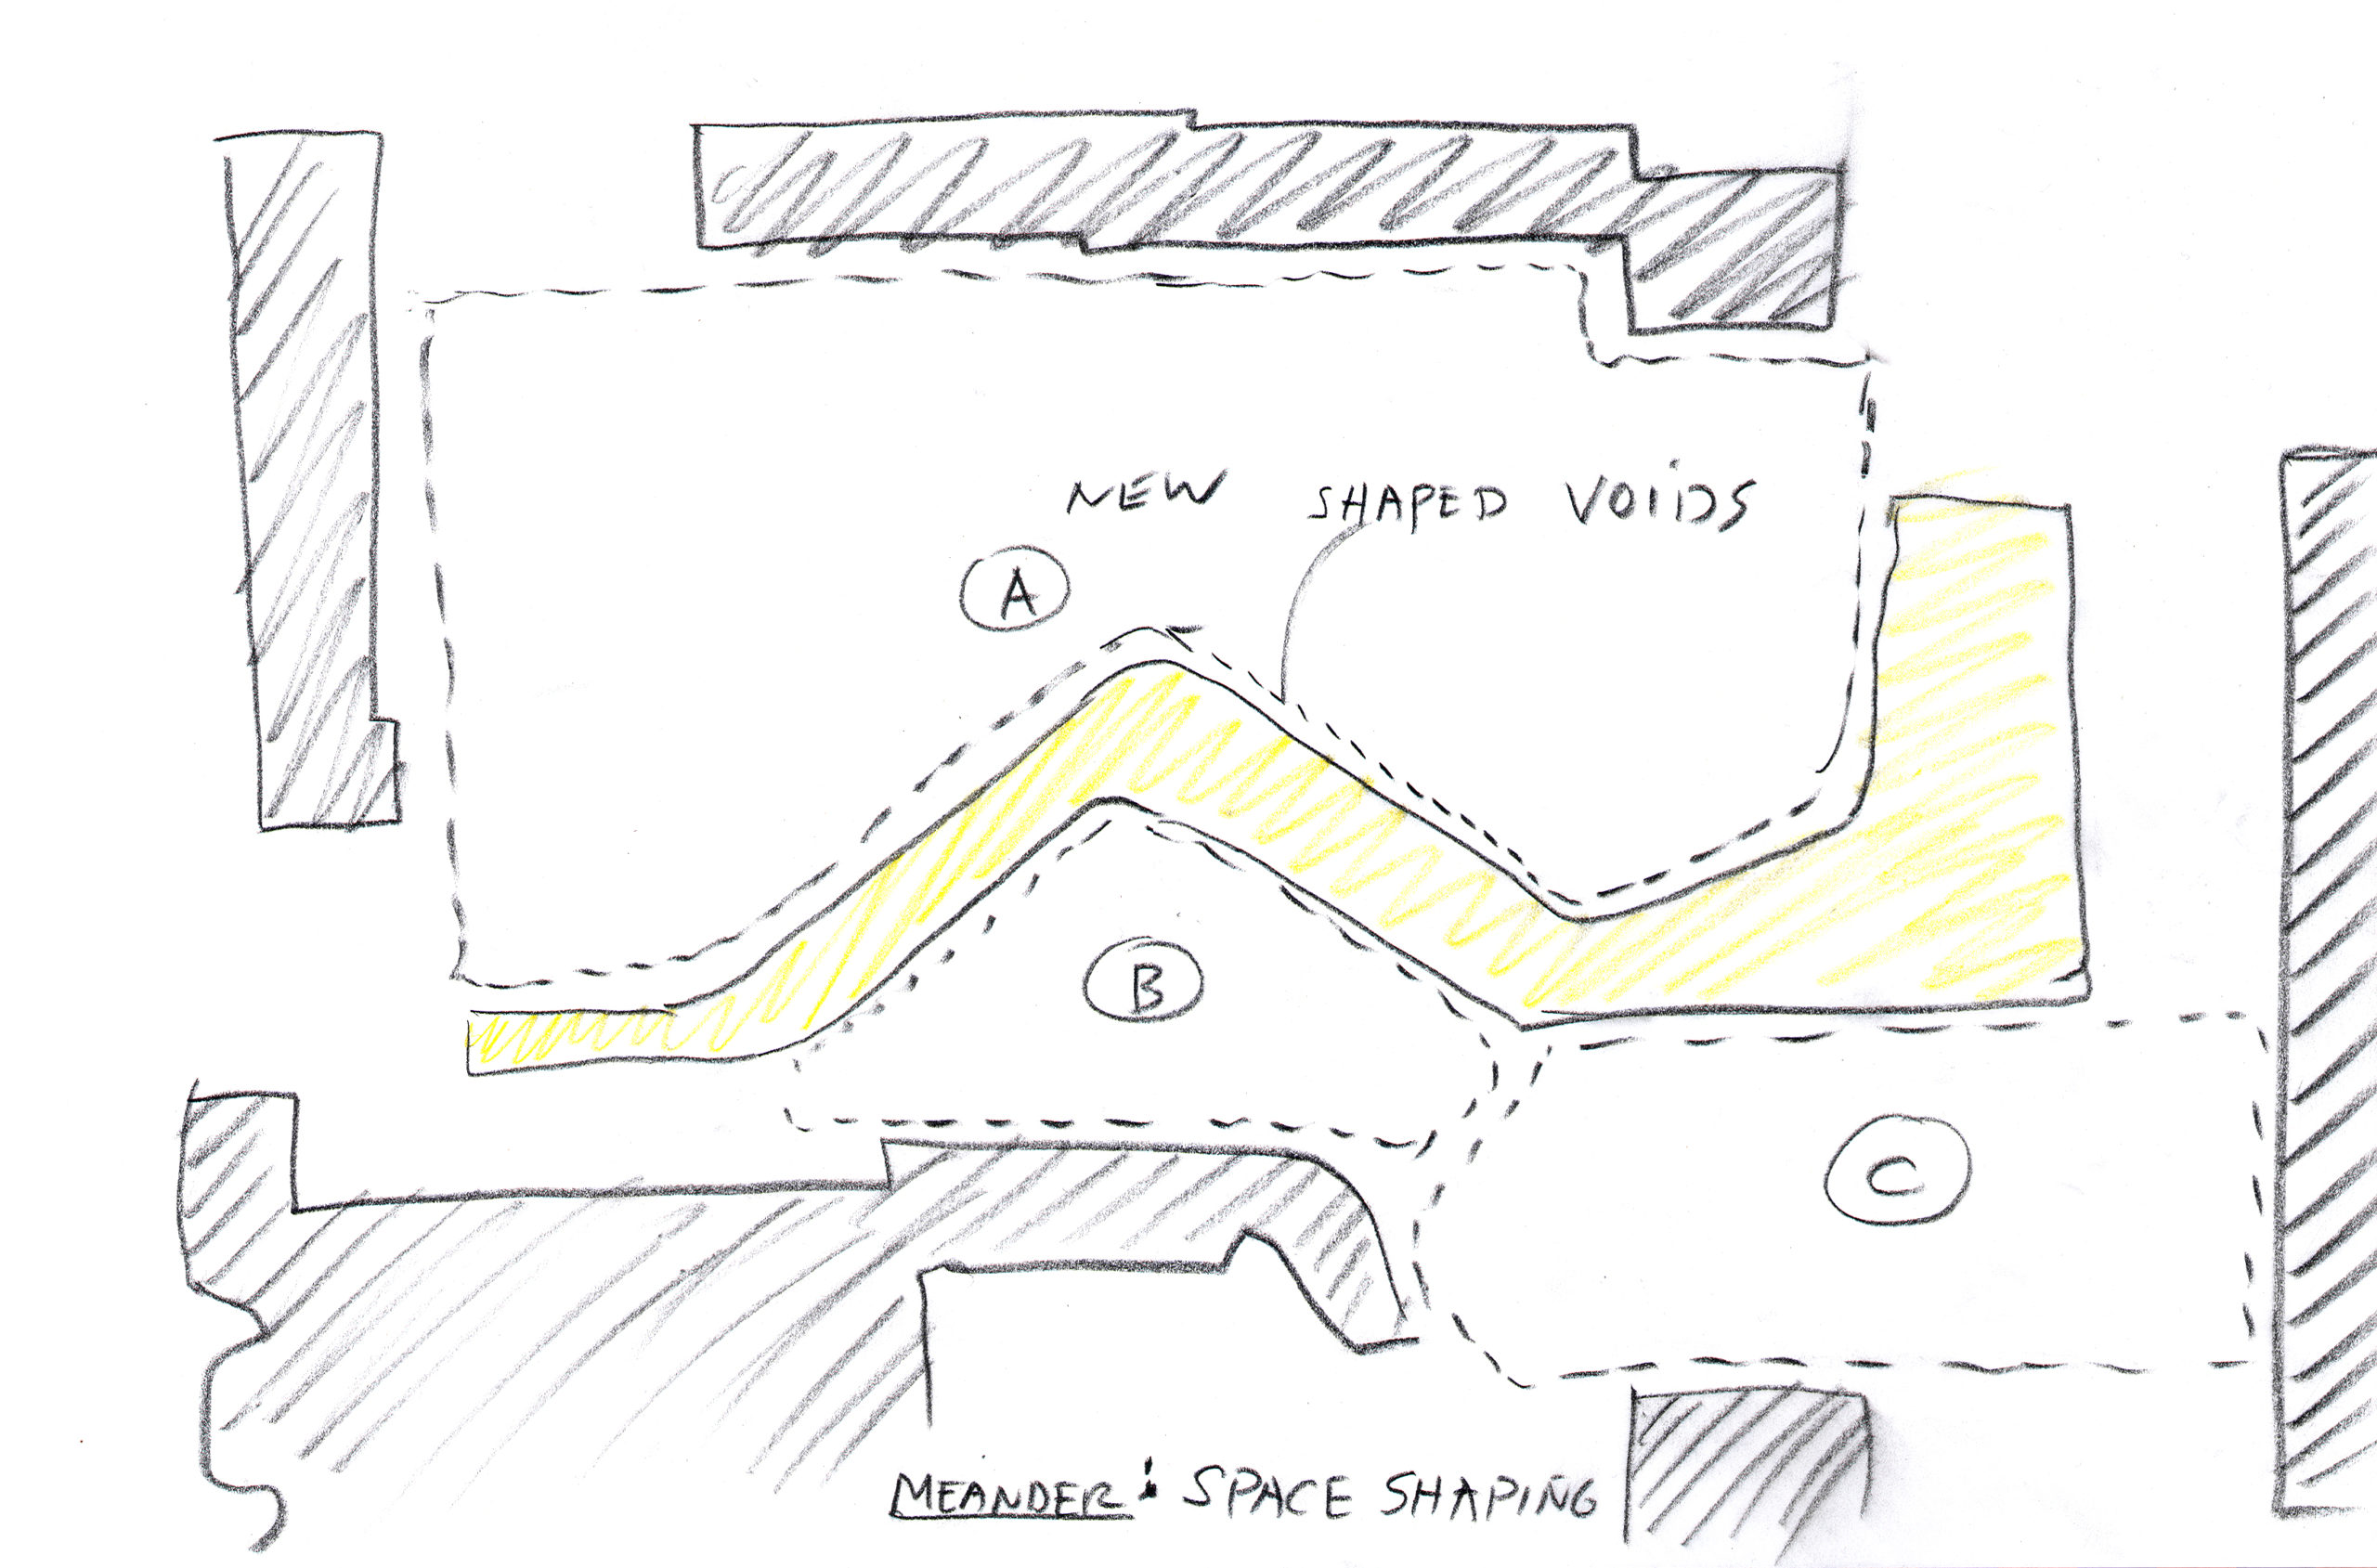 NEW SHAPED VOIDS
A
B
C
MEANDER: SPACE SHAPING